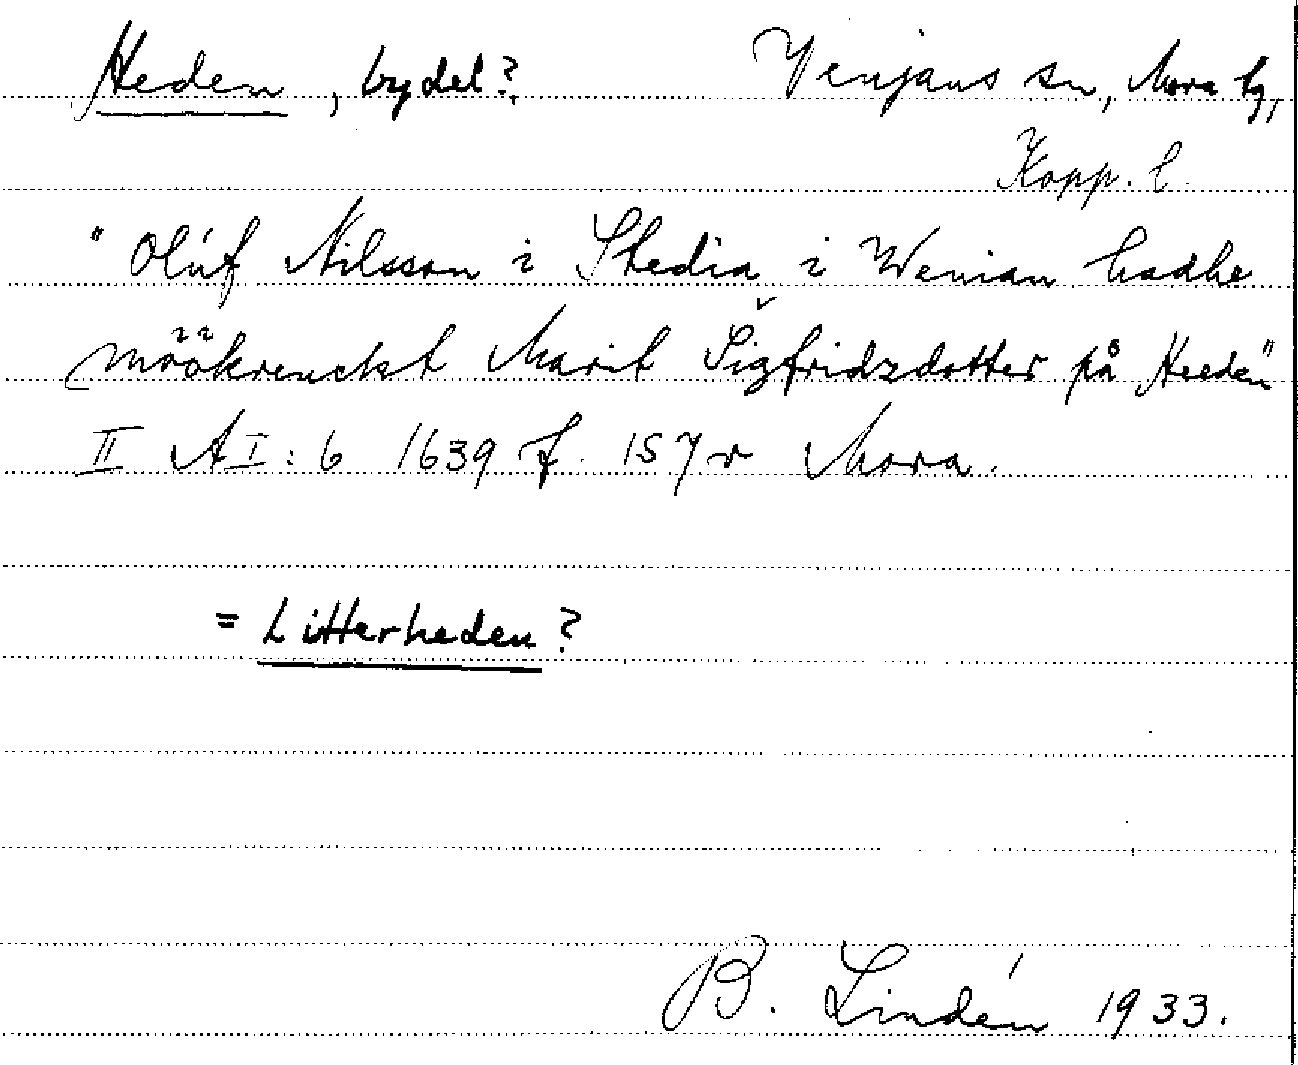 Heden, bydel? Venjans sn, Mora tg,
Kopp. l
"Olúf Nilsson i Stedia i Wenian hadhe
möökrenckt Marit Sigfridzdotter på Heeden"
II A I: 6 1639 f. 157 r Mora.
= Litterheden?
B. Lindén 1933.